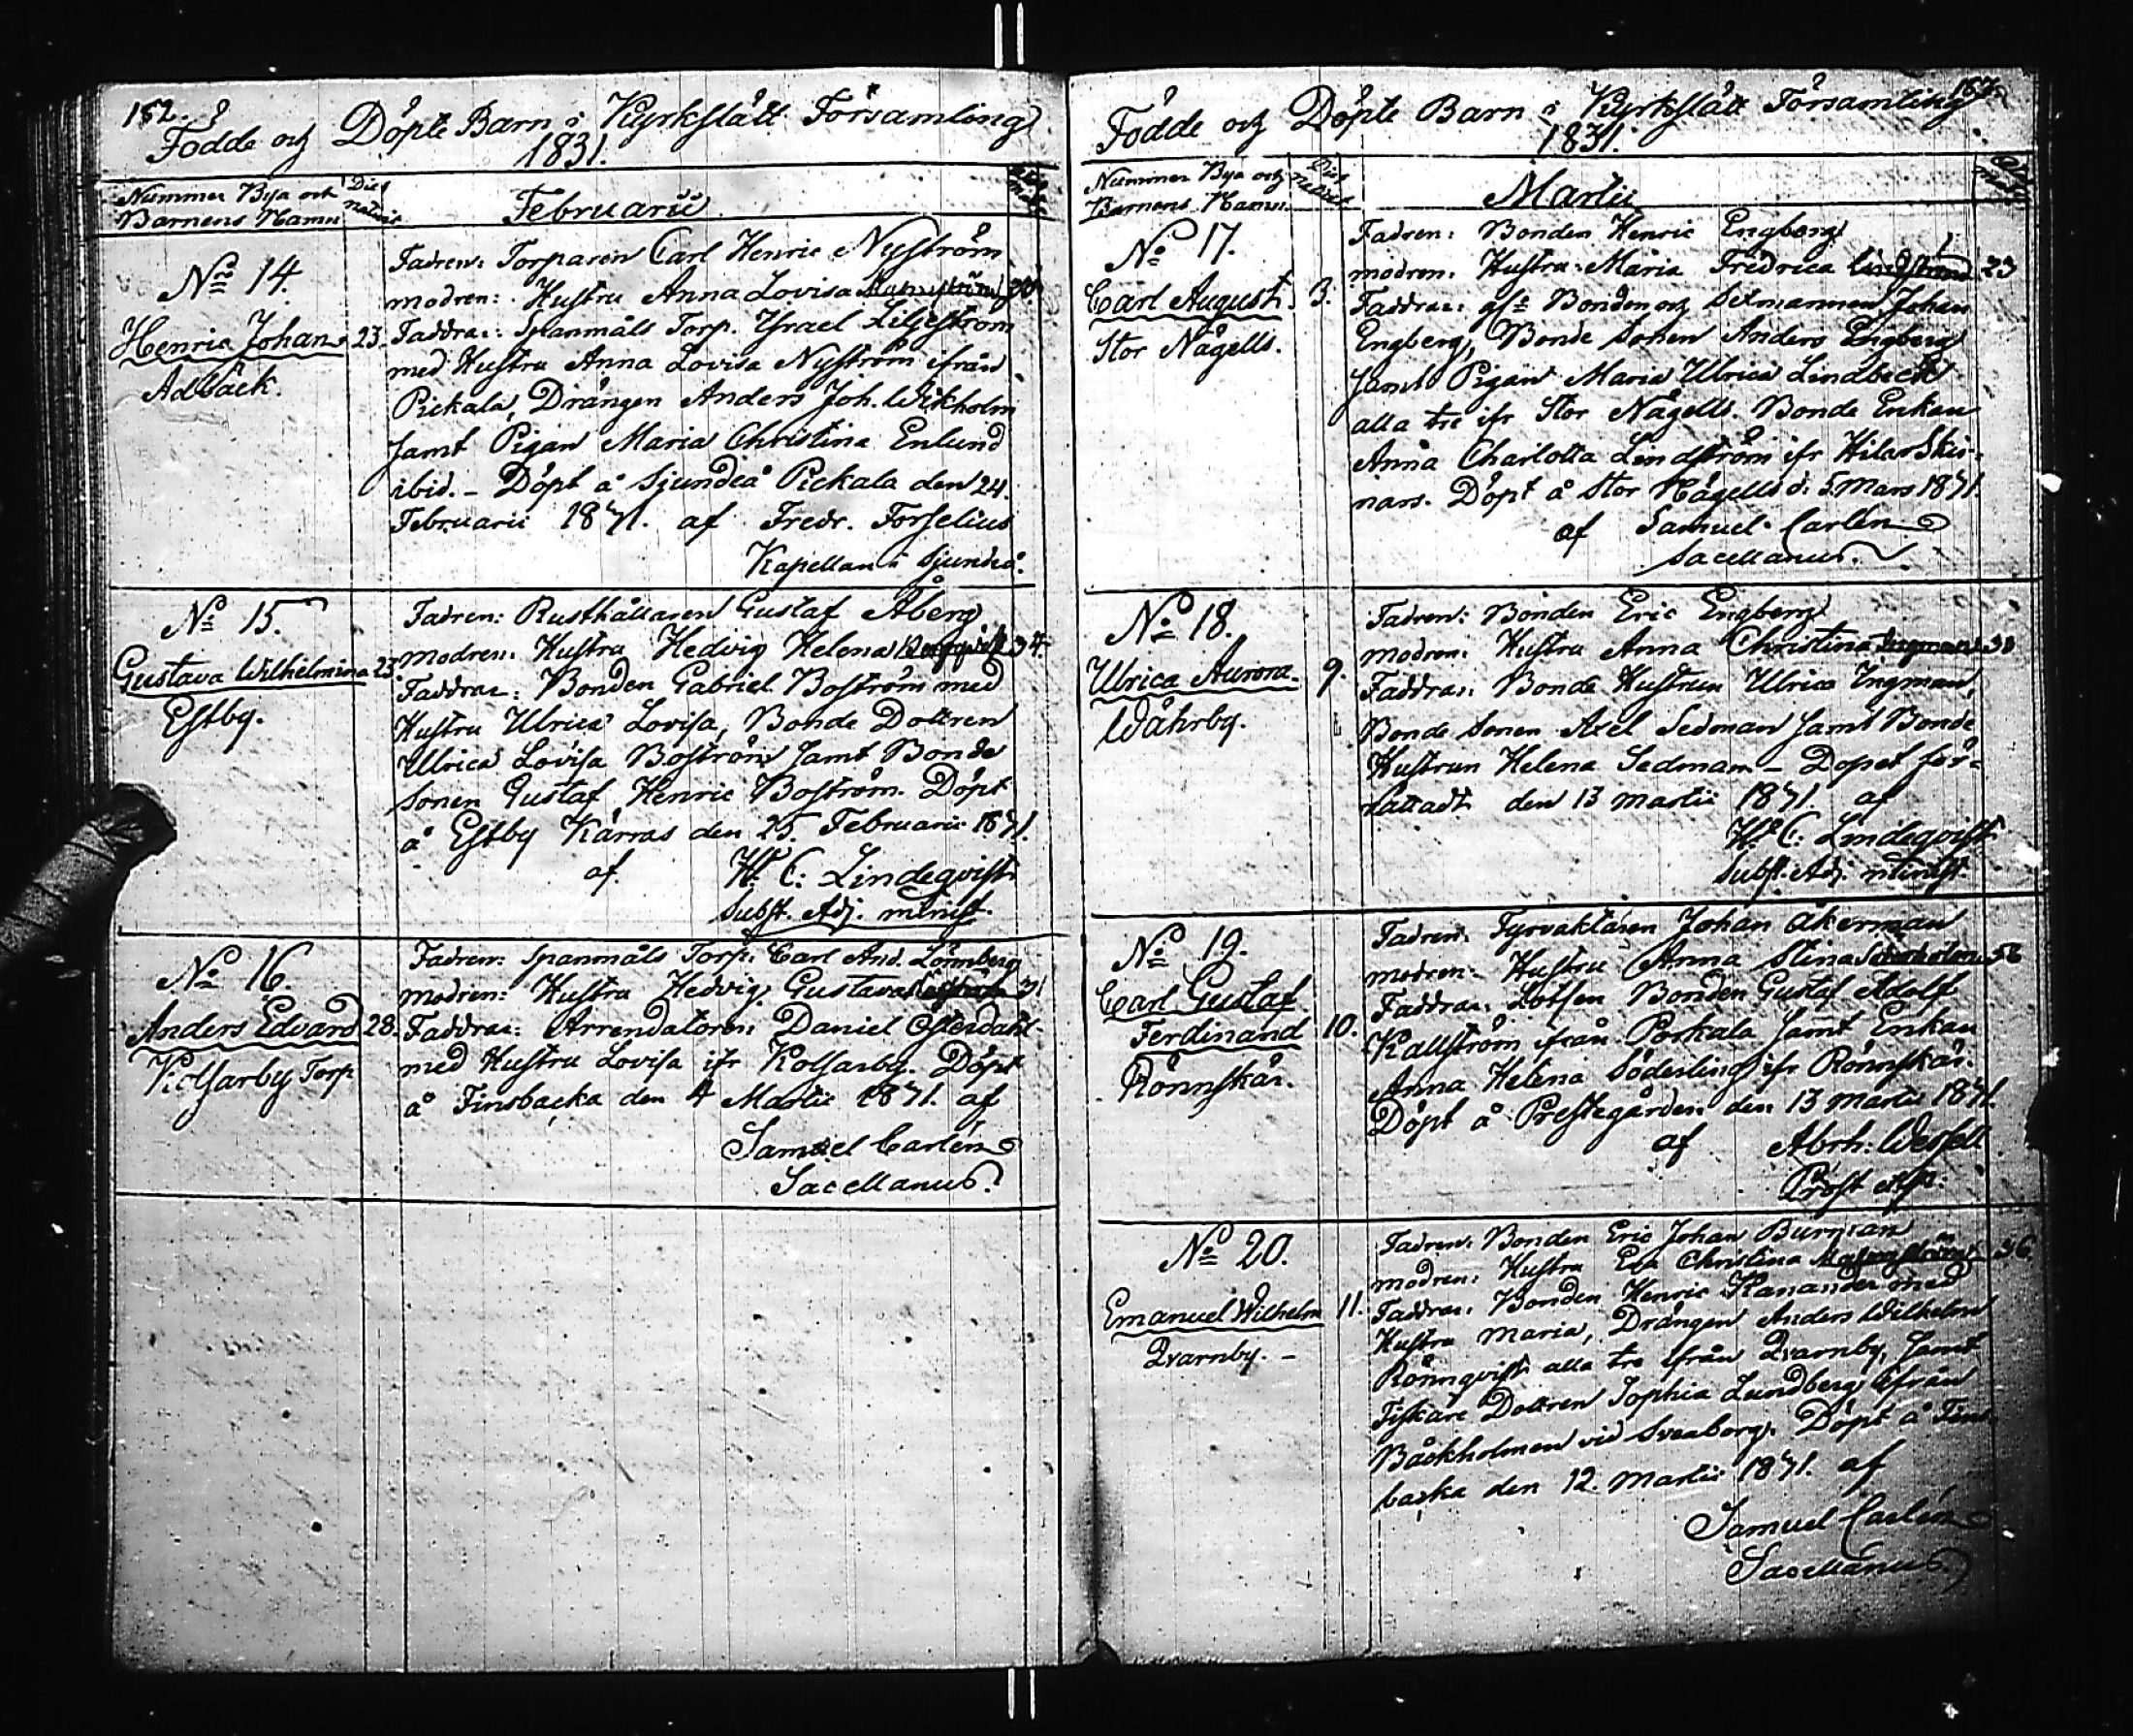 162.
Födde och Döpte Barn i Kyrkslätt Församling
1831.
Nummer Bya och
Barnens Namn
Dies
natuit.
Februarii
No 14.
Henric Johan
Adbäck.
23.
Fadren: Torparen Carl Henric Nyström
modren: Hustru Anna Lovisa
Faddrar: Spanmåls Torp. Israel Liljeström
med Hustru Anna Lovisa Nyström ifrån
Pickala, Drängen Anders Joh. Wikholm
Jamt Pigan Maria Christina Enlund
ibid. – Döpt å Sjundeå Pickala den 24.
Februarii 1831. af Fredr. Forselius
Kapellan i Sjundeå.
No 15.
Gustava Wilhelmina
Estby.
23.
Fadren: Rusthållaren Gustaf Åberg
modren: Hustru Hedvig Helena
Faddrar: Bonden Gabriel Boström med
Hustru Ulrica Lovisa, Bonde Dottren
Ulrica Lovisa Boström Jamt Bonde
Sonen Gustaf Henric Boström. Döpt
å Estby Kärras den 25. Februarii 1831.
af H: C: Lindeqvist
Subst. Adj. minist.
No 16.
Anders Edvard
Kolsarby Torp
28.
Fadren: Spanmåls Torp: Carl And. Lönnberg
modren: Hustru Hedvig Gustava 31
Faddrar: Arrendatoren Daniel Österdahl
med Hustru Lovisa ifr Kolsarby. Döpt
å Finsbacka den 4 Martii 1831. af
Samuel Carlén
Sacellanus.
Födde och Döpte Barn i Kyrkslätt Församling
1831.
Nummer Bya och
Barnens Namn.
Martii
No 17.
Carl August.
Stor Någells.
3.
Fadren: Bonden Henric Engberg
modren: Hustru Maria Fridrica Lindström 23
Faddrar: Bonden och Sexmannen Johan
Engberg, Bonde Sonen Anders Engberg
Jamt Pigan Maria Ulrica Lindbeck
alla tre ifr Stor Någells. Bonde Enkan
Anna Charlotta Lindström ifr Hilar Skin-
nars. Döpt å Stor Någells d. 5 Mars 1831.
af Samuel Carlén
Sacellanus.
No 18.
Ulrica Aurora.
Währby.
9.
Fadren: Bonden Eric Engberg
modren: Hustru Anna Christina Ingman
Faddrar: Bonde Hustrun Ulrica Ingman,
Bonde Sonen Axel Sedman Jamt Bonde
Hustrun Helena Sedman – Dopet för-
rättadt den 13 Martii 1831. af
H: C: Lindeqvist
Subst. Adj. minist.
No 19.
Carl Gustaf
Ferdinand
Rönnskär.
10.
Fadren: Fyrvaktaren Johan Åkerman
modren: Hustru Anna Stina
Faddrar: Lotsen Bonden Gustaf Adolf
Kallström ifrån Porkala Jamt Enkan
Anna Helena Söderling ifr Rönnskär.
Döpt å Prestegården den 13 Martii 1831.
af Abrh: Wessell
Prost
No 20.
Emanuel Wilhelm
Qvarnby. –
11.
Fadren: Bonden Eric Johan Burman
modren: Hustru Eva Christina 36.
Faddrar: Bonden Henric Kanander med
Hustru Maria, Drängen Anders Wilhelm
Rönnqvist alla tre ifrån Qvarnby, Jamt
Fiskare Dottren Sophia Lundberg ifrån
Båckholmen vid Sveaborg. Döpt å Fins-
backa den 12. Martii 1831. af
Samuel Carlén
Sacellanus.